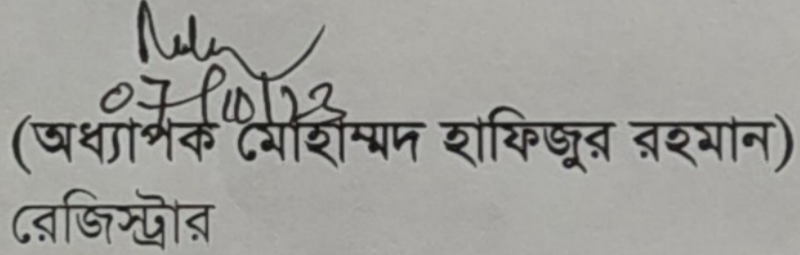 07/10/23
(অধ্যাপক মোহাম্মদ হাফিজুর রহমান)
রেজিস্ট্রার